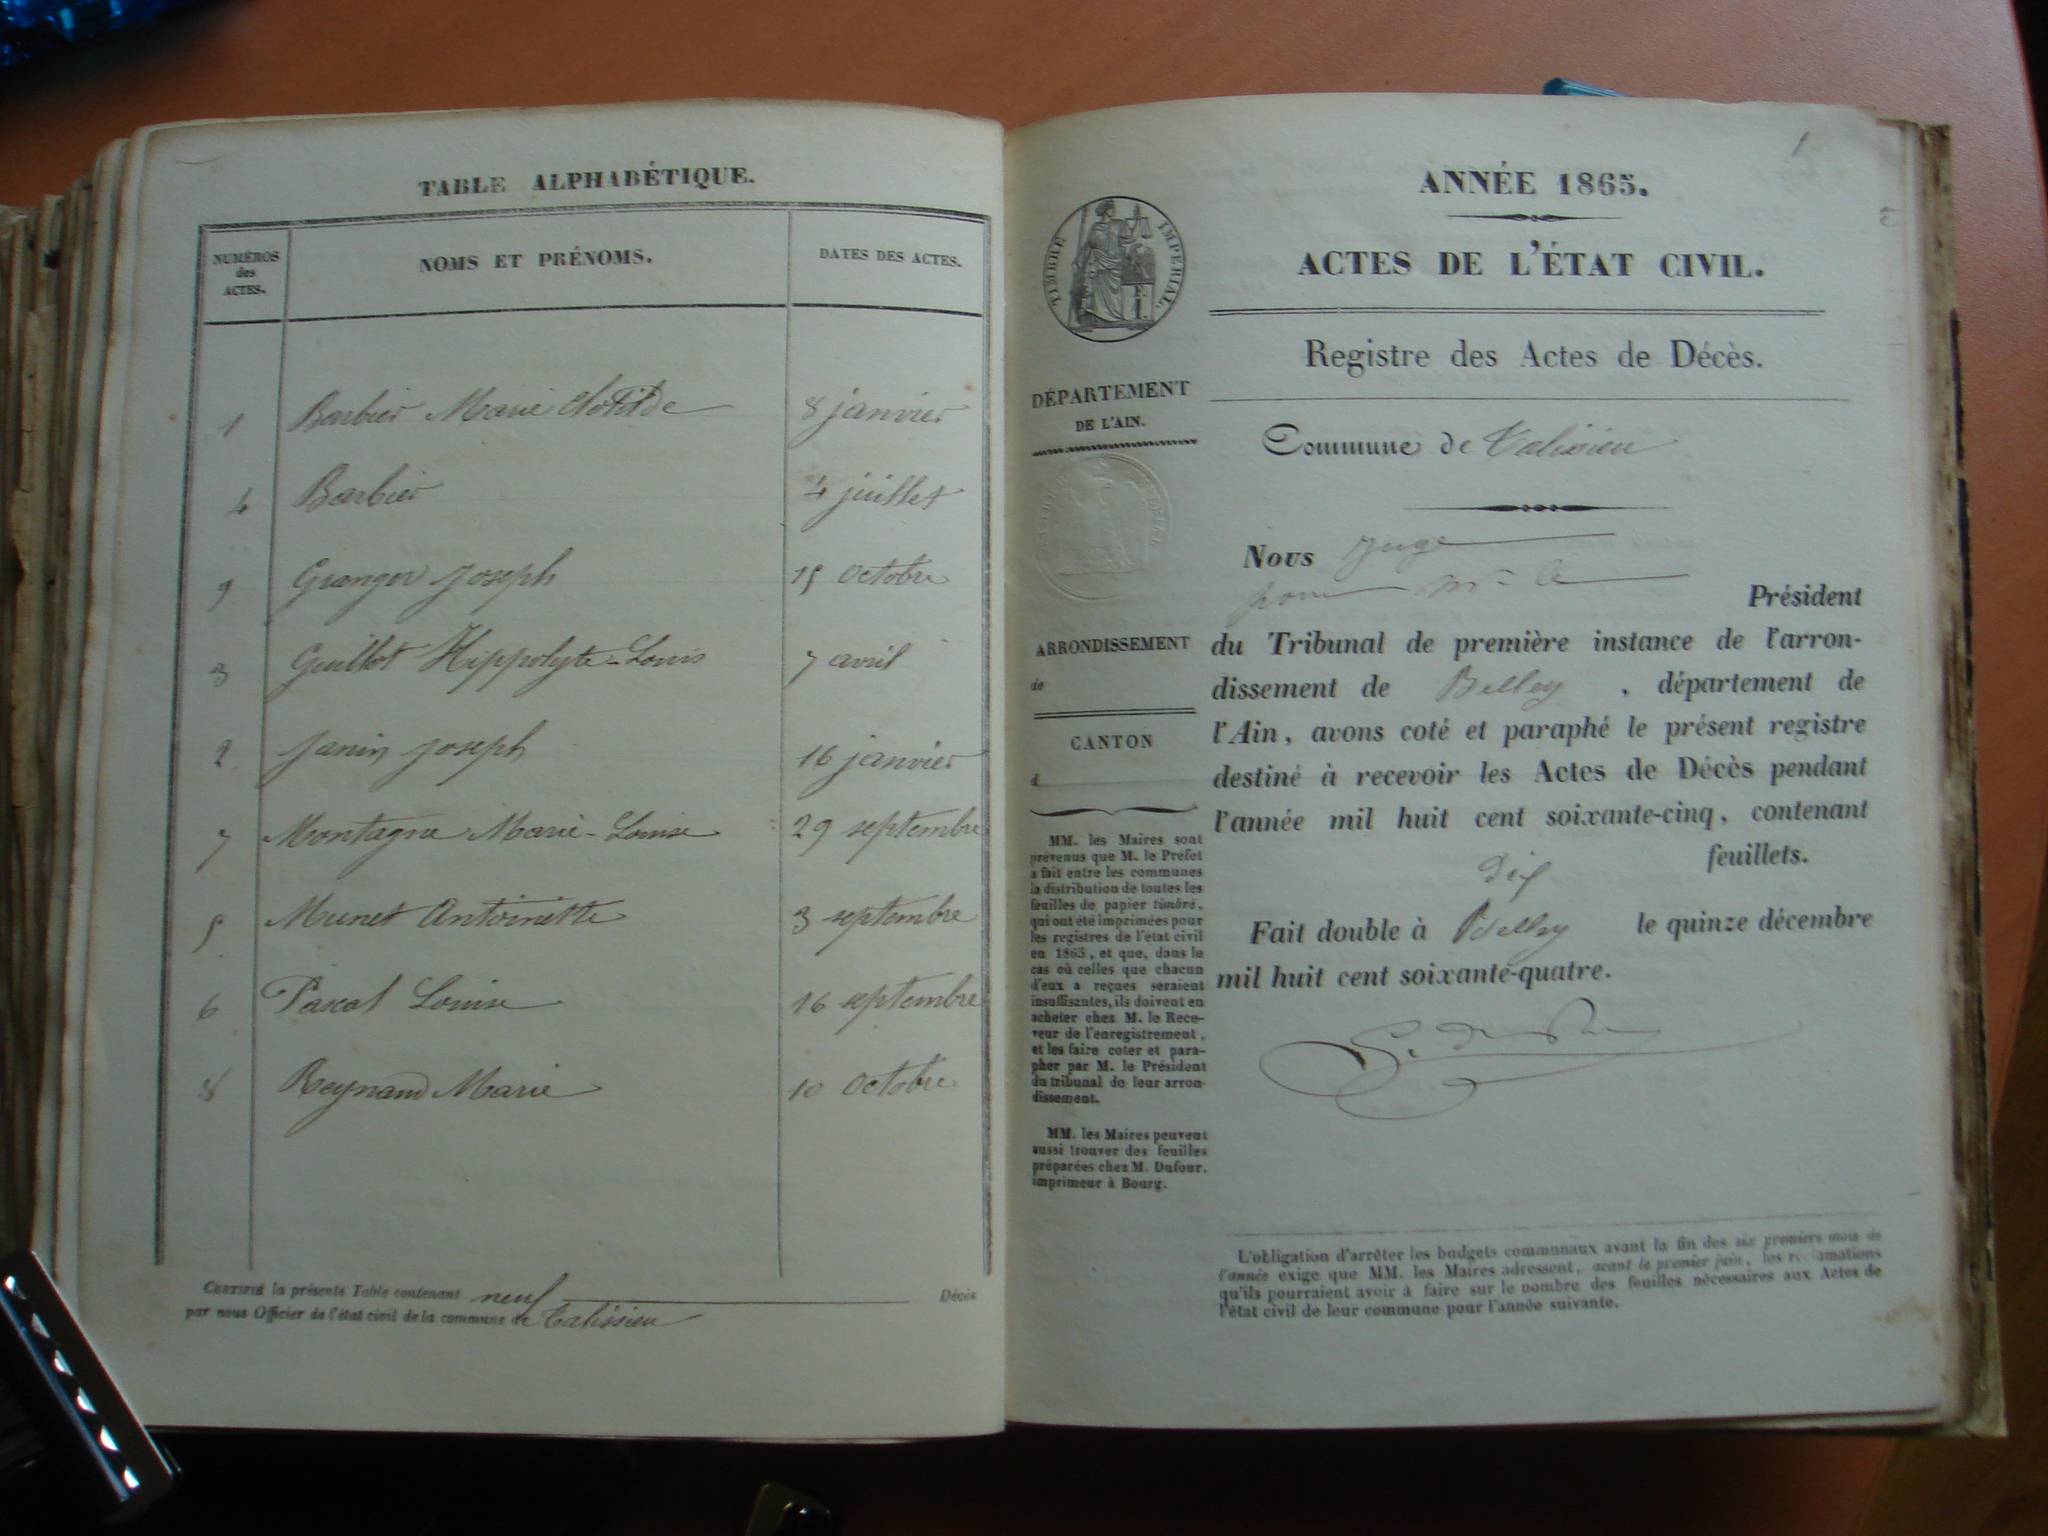 TABLE ALPHABÉTIQUE.
NUMÉROS
des
ACTES.
NOMS ET PRÉNOMS.
DATES DES ACTES.
1 Barbier Marie Clotilde 8 janvier
4 Barbier 4 juillet
9 Granger Joseph 15 Octobre
3 Guillot Hippolyte-Louis 7 avril
2 Janin Joseph 16 janvier
7 Montagne Marie-Louise 29 septembre
5 Munet Antoinette 3 septembre
6 Pascal Louise 16 septembre
8 Reynaud Marie 10 Octobre
CERTIFIÉ la présente Table contenant neuf Décès
par nous Officier de l'état civil de la commune de Talissieu
1
ANNÉE 1865.
ACTES DE L'ÉTAT CIVIL.
Registre des Actes de Décès.
TIMBRE IMPÉRIAL.
DÉPARTEMENT
DE L'AIN.
ARRONDISSEMENT
de
CANTON
d
MM. les Maires sont
prévenus que M. le Préfet
a fait entre les communes
la distribution de toutes les
feuilles de papier timbré,
qui ont été imprimées pour
les registres de l'état civil
en 1865, et que, dans le
cas où celles que chacun
d'eux a reçues seraient
insuffisantes, ils doivent en
acheter chez M. le Rece-
veur de l'enregistrement,
et les faire coter et para-
pher par M. le Président
du tribunal de leur arron-
dissement.
MM. les Maires peuvent
aussi trouver des feuilles
préparées chez M. Dufour,
imprimeur à Bourg.
Commune de Talissieu
Nous Juge
pour Mr le
Président
du Tribunal de première instance de l'arron-
dissement de Belley, département de
l'Ain, avons coté et paraphé le présent registre
destiné à recevoir les Actes de Décès pendant
l'année mil huit cent soixante-cinq, contenant
dix feuillets.
Fait double à Belley le quinze décembre
mil huit cent soixante-quatre.
L'obligation d'arrêter les budgets communaux avant la fin des six premiers mois de
l'année exige que MM. les Maires adressent, avant le premier juin, les réclamations
qu'ils pourraient avoir à faire sur le nombre des feuilles nécessaires aux Actes de
l'état civil de leur commune pour l'année suivante.